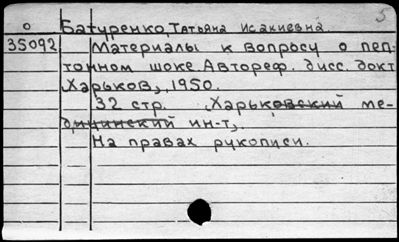 5
о Батуренко, Татьяна Исакиевна
35092 Материалы к вопросу о пеп-
тонном шоке. Автореф. дисс. докт
Харьков, 1950.
32 стр. Харьковский ме-
дицинский ин-т,.
На правах рукописи.